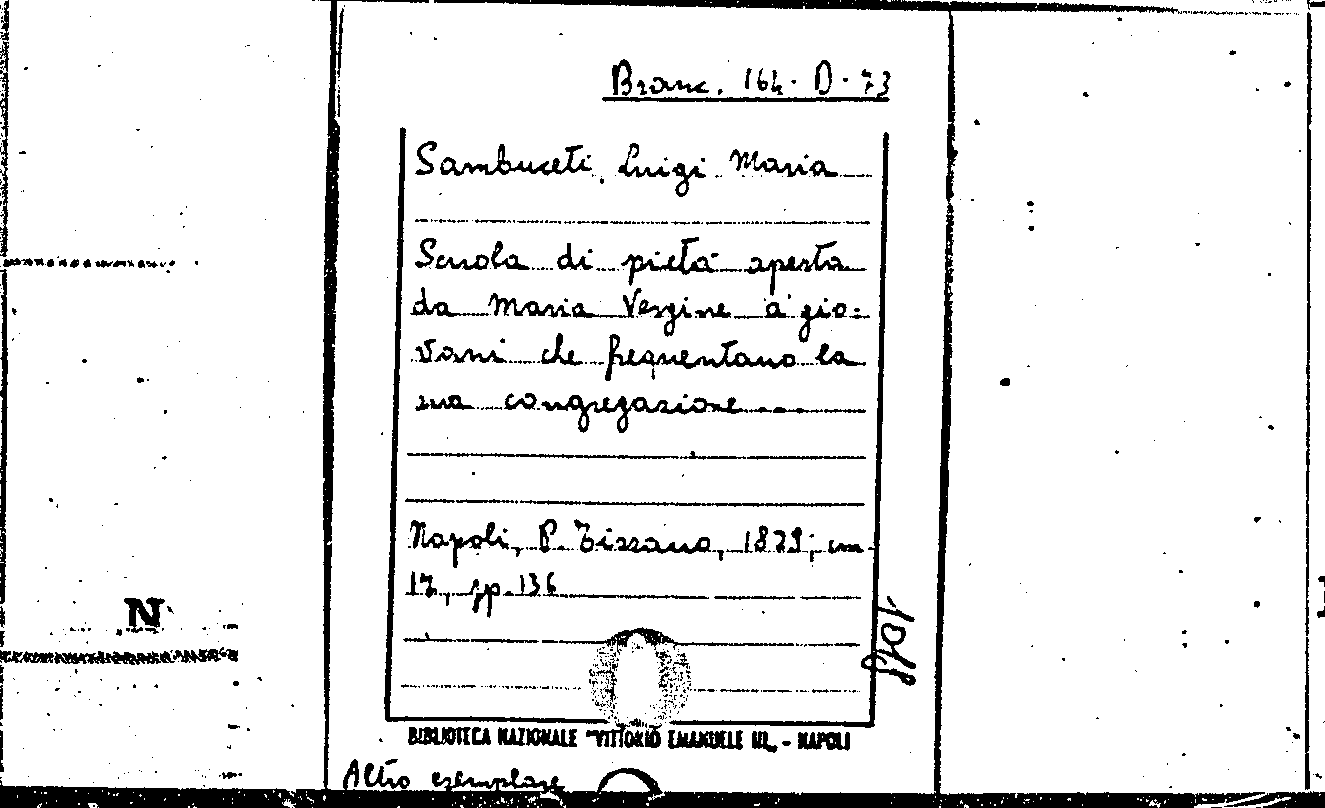 Branc. 164. D. 73
Sambuceti, Luigi Maria
Scuola di pietà aperta
da Maria Vergine a' gio=
vani che frequentano la
sua congregazione....
Napoli, P. Tizzano, 1829; cm
17, pp. 136
BIBLIOTECA NAZIONALE "VITTORIO EMANUELE III„ - NAPOLI
Altro esemplare
N